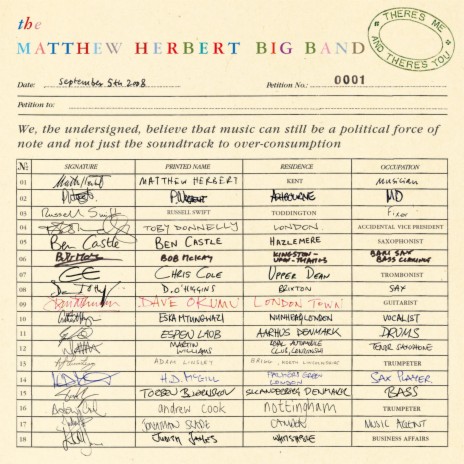 the
MATTHEW HERBERT BIG BAND
THERE'S ME
AND THERE'S YOU
Date: September 5th 2008 Petition No.: 0001
Petition to:
We, the undersigned, believe that music can still be a political force of
note and not just the soundtrack to over-consumption
No SIGNATURE PRINTED NAME RESIDENCE OCCUPATION
01 MATTHEW HERBERT KENT Musician
02 P.Wright ASHBOURNE MD
03 Russell Swift RUSSELL SWIFT TODDINGTON Fixer
04 TOBY DONNELLY LONDON ACCIDENTAL VICE PRESIDENT
05 Ben Castle BEN CASTLE HAZLEMERE SAXOPHONIST
06 BOB McKAY KINGSTON-UPON-THAMES BARI SAX BASS CLARINET
07 CHRIS COLE UPPER DEAN TROMBONIST
08 D. O'HIGGINS BRIXTON SAX
09 DAVE OKUMU LONDON TOWN GUITARIST
10 ESKA MTUNGWAZI NUNHEAD LONDON VOCALIST
11 ESPEN LAUB AARHUS DENMARK DRUMS
12 MARTIN WILLIAMS ROYAL AUTOMOBILE CLUB, TENOR SAXOPHONE
13 ADAM LINSLEY TRUMPETER
14 H.D. McGILL PALMERS GREEN LONDON SAX PLAYER
15 DENMARK BASS
16 andrew cook nottingham TRUMPETER
17 JONATHAN SLADE CAMDEN MUSIC AGENT
18 JUDITH JAMES WHITSTABLE BUSINESS AFFAIRS